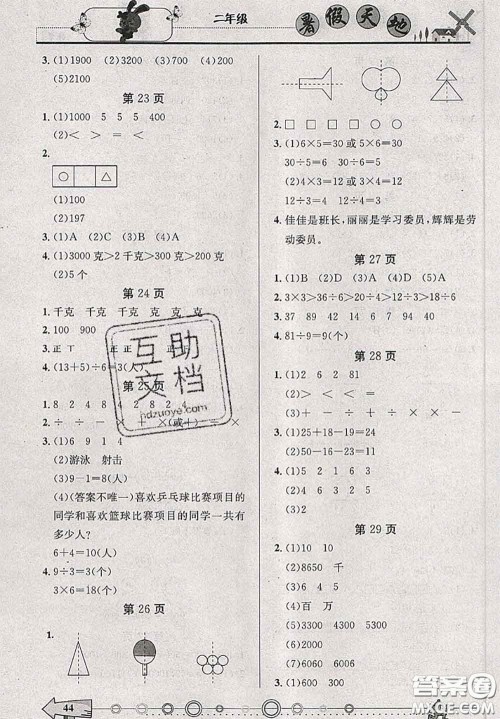 二年级
暑假天地
3. (1)1900 (2)3200 (3)700 (4)200
(5)2100
第 23 页
1. (1)1000 5 5 400
(2)< < = <
2.
(1)536
(2)197
3. (1)A (2)C (3)C (4)A
4. (1)3000 克>2 千克>300 克>200 克
(2)5 个
第 24 页
1. 千克 千克 克 克 克 克
2. 100 900
3. 正 正 正
4. (13+5)÷6=3(人)
第 25 页
1. 8 2 4 8 2 8 2 4
2. ÷ - × ×(或+)
3. (1)6 9 1 4
(2)游泳 射击
(3)9-1=8(人)
(4)(答案不唯一)喜欢乒乓球比赛项目的
同学和喜欢篮球比赛项目的同学一共有
多少人?
6+4=10(人)
4. 9÷3=3(个)
3×6=18(个)
第 26 页
1.
44
2. □ □ ○ □ □
3. (1)6×5=30 或 5×6=30
30÷5=6 30÷6=5
(2)4×3=12 或 3×4=12
12÷3=4 12÷4=3
4. 佳佳是班长,丽丽是学习委员,辉辉是劳
动委员。
第 27 页
1. (1)B (2)D (3)A (4)B (5)A
2. 3×3>36÷6>20÷5>12÷4>18÷6
3. 15 37 18 63 4
4. 81÷9=9(个)
第 28 页
1. (1)2 6 2 81
(2)> < < =
(3)+ - ÷ + × - ÷ ×
2. (1)25+18-19=24
(2)51-15-15=21
(3)30-20+10=20
3. (1)2
(2)4
第 29 页
2. (1)10 10
(2)8650 千
(3)6 3
(4)百 万
(5)3300 4300 5300
(6)2000
(7)6080
3. (1)600 300
互助文档
hdzuoye.com
答案圈
MXQE.COM